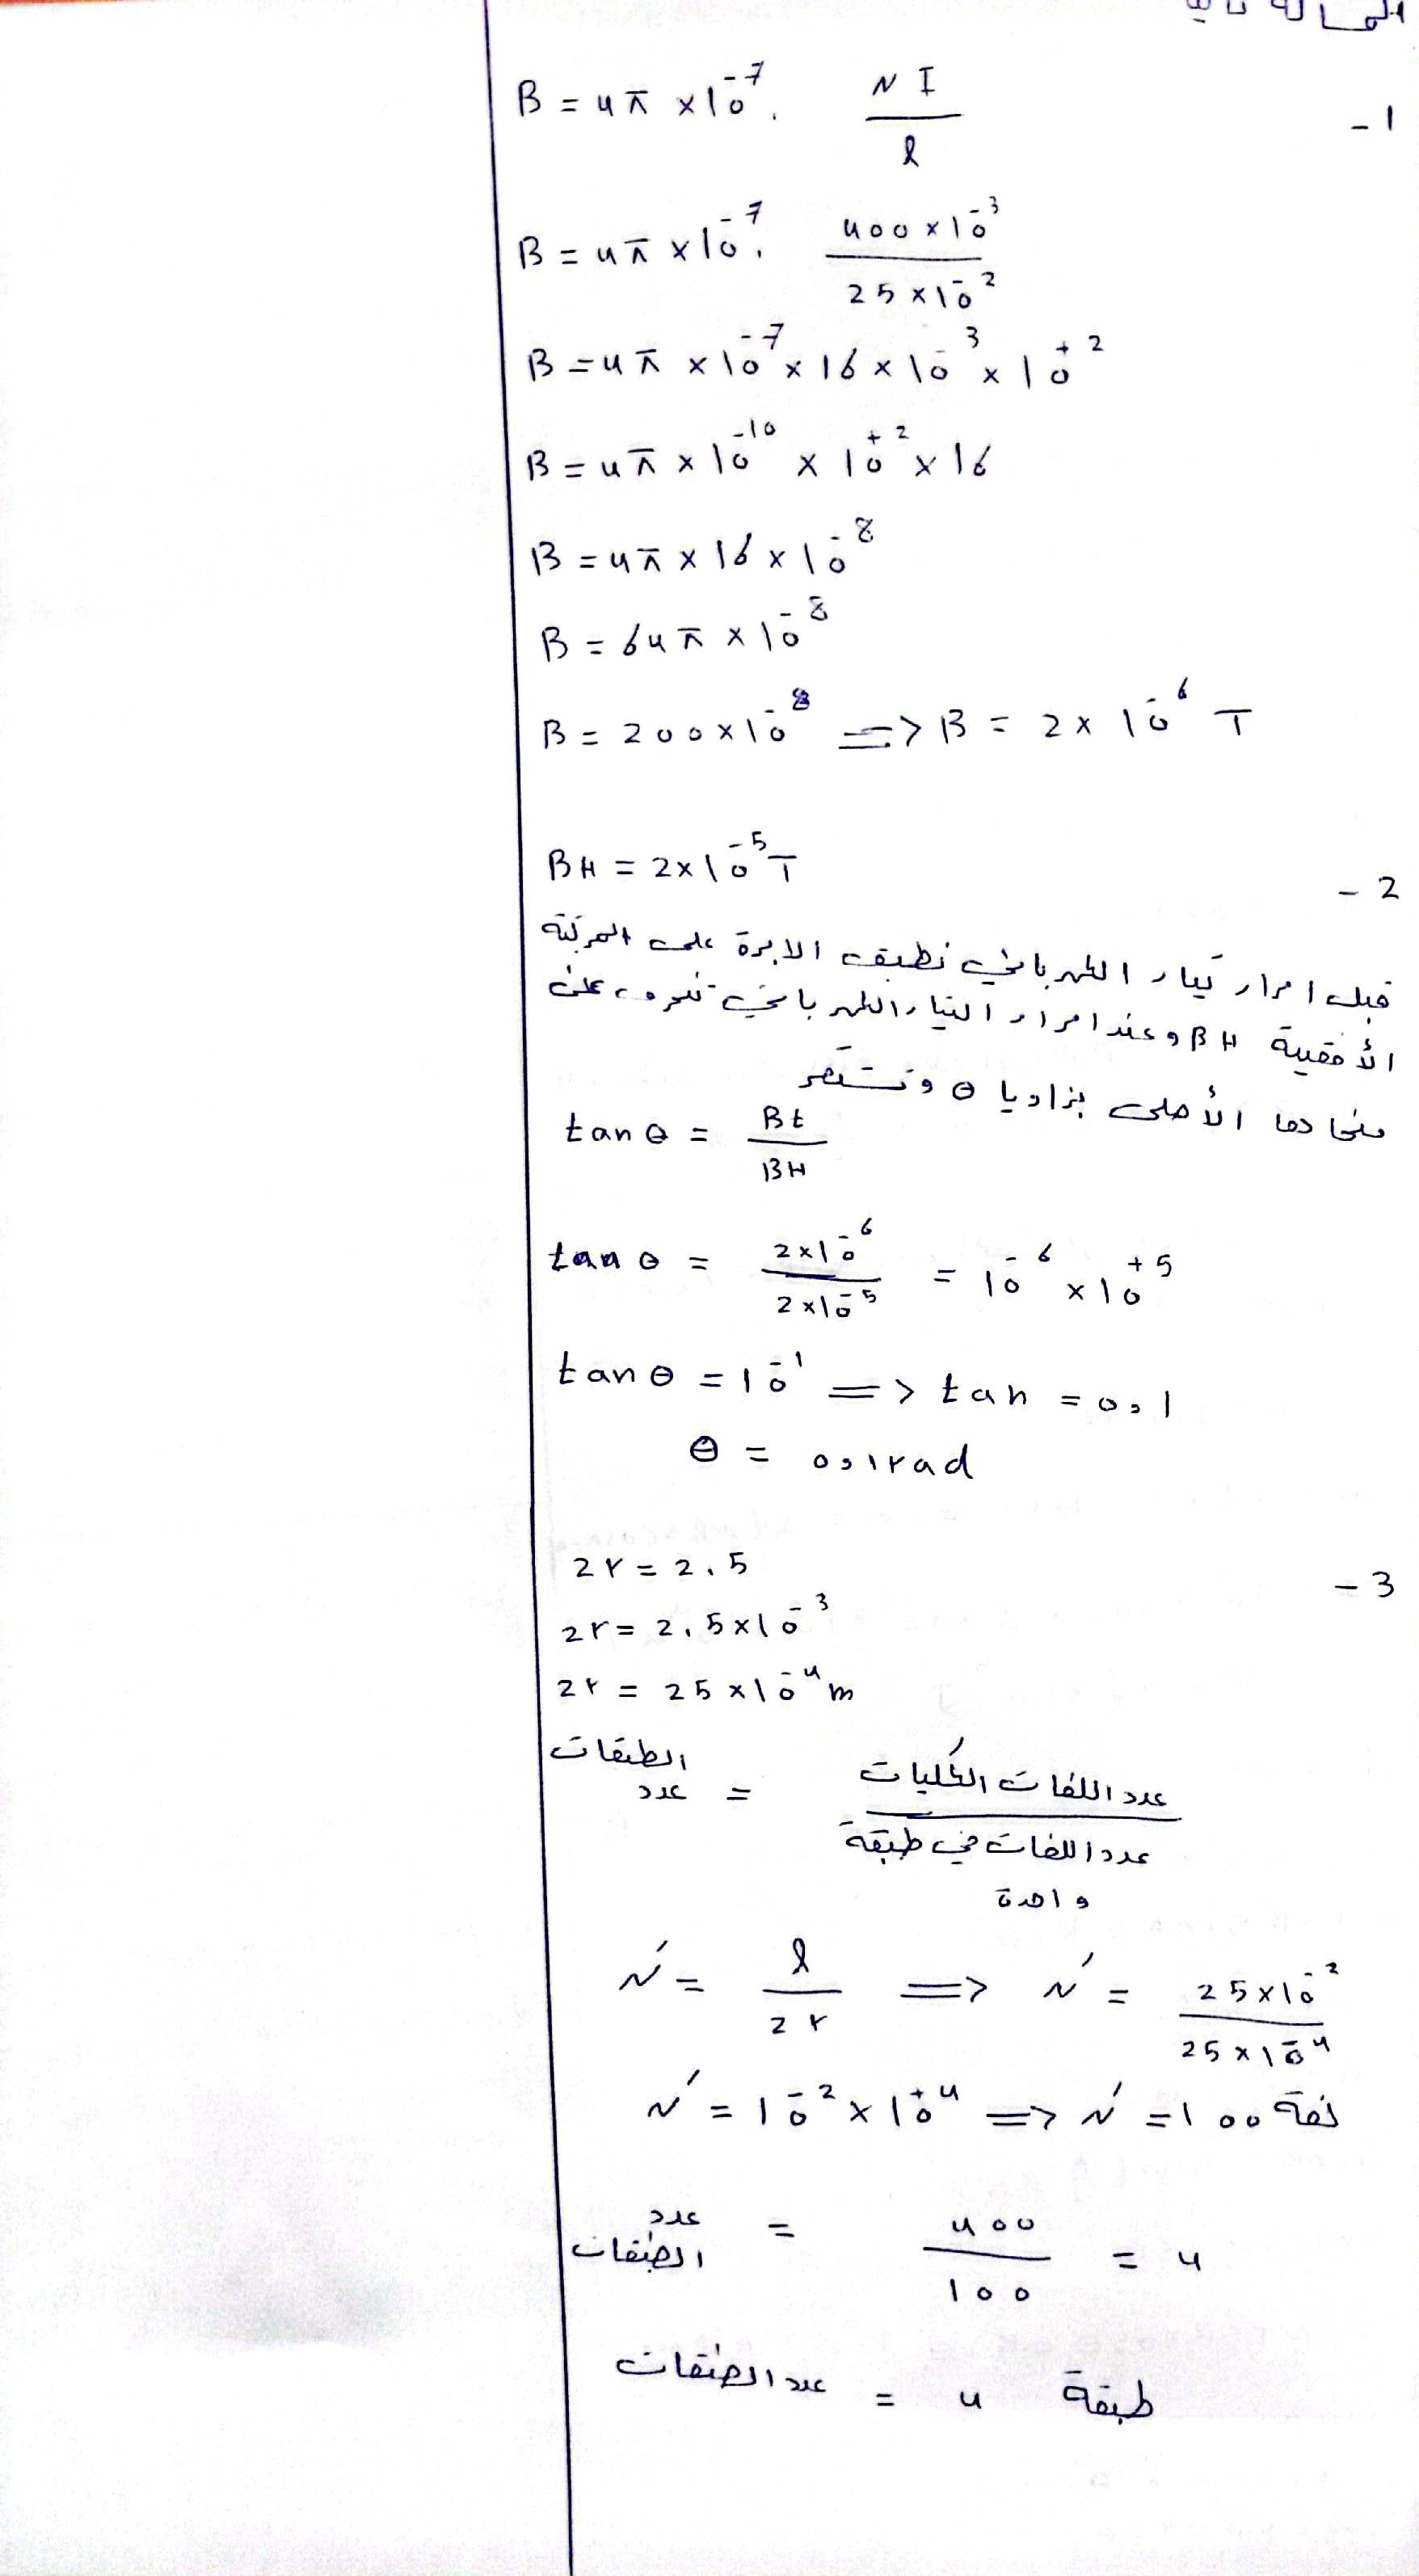 المسألة ثانية
1 -
B = 4π × 10⁻⁷ . NI / l
B = 4π × 10⁻⁷ . 400 × 10⁻³ / 25 × 10⁻²
B = 4π × 10⁻⁷ × 16 × 10⁻³ × 10⁺²
B = 4π × 10⁻¹⁰ × 10⁺² × 16
B = 4π × 16 × 10⁻⁸
B = 64π × 10⁻⁸
B = 200 × 10⁻⁸ => B = 2 × 10⁻⁶ T
2 -
BH = 2 × 10⁻⁵ T
قبل امرار تيار الكهربائي نطبق الابرة على المركبة
الأفقية BH وعند امرار التيار الكهربائي تنحرف على
منحادها الأصلي بزاويا θ وتستقر
tan θ = Bt / BH
tan θ = 2 × 10⁻⁶ / 2 × 10⁻⁵ = 10⁻⁶ × 10⁺⁵
tan θ = 10⁻¹ => tan = 0,1
θ = 0,1 rad
3 -
2r = 2.5
2r = 2.5 × 10⁻³
2r = 25 × 10⁻⁴ m
عدد الطبقات = عدد اللفات الكليات / عدد اللفات في طبقة واحدة
N' = l / 2r => N' = 25 × 10⁻² / 25 × 10⁻⁴
N' = 10⁻² × 10⁺⁴ => N' = 100 لفة
عدد الطبقات = 400 / 100 = 4
عدد الطبقات = 4 طبقة